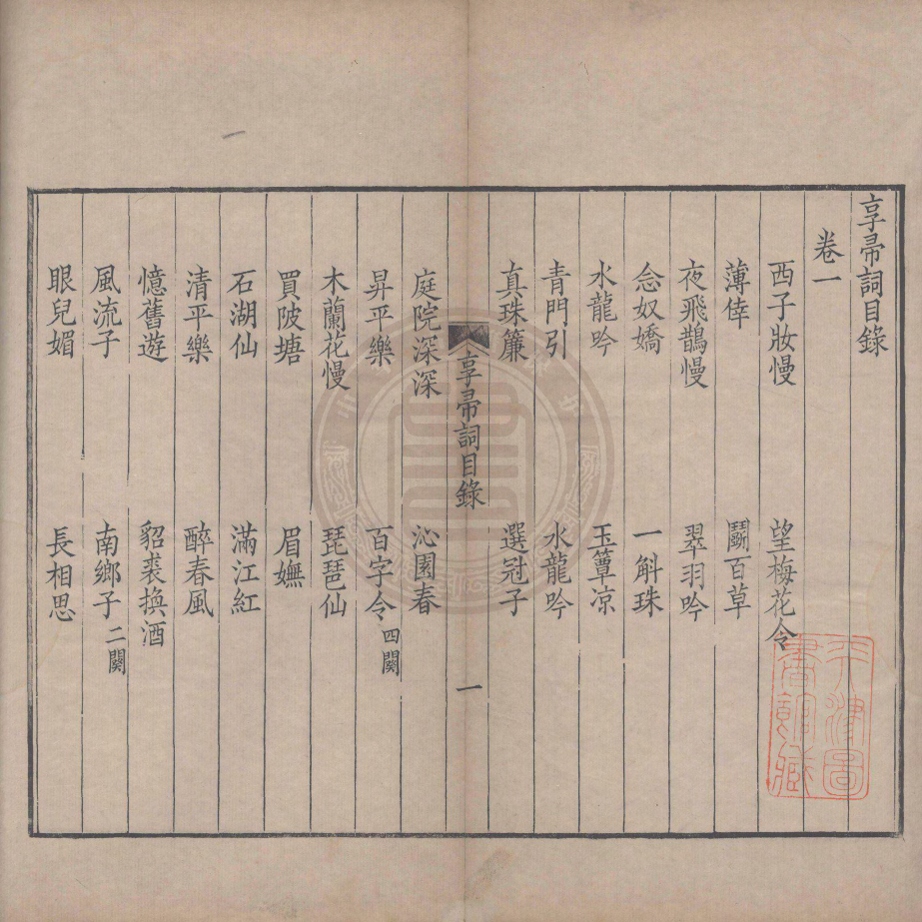 享帚詞目錄
卷一
西子妝慢 望梅花令
薄倖 鬭百草
夜飛鵲慢 翠羽吟
念奴嬌 一斛珠
水龍吟 玉簟凉
青門引 水龍吟
真珠簾 選冠子
享帚詞目錄 一
庭院深深 沁園春
昇平樂 百字令四闋
木蘭花慢 琵琶仙
買陂塘 眉嫵
石湖仙 滿江紅
清平樂 醉春風
憶舊遊 貂裘換酒
風流子 南鄉子二闋
眼兒媚 長相思
天津圖
書館藏